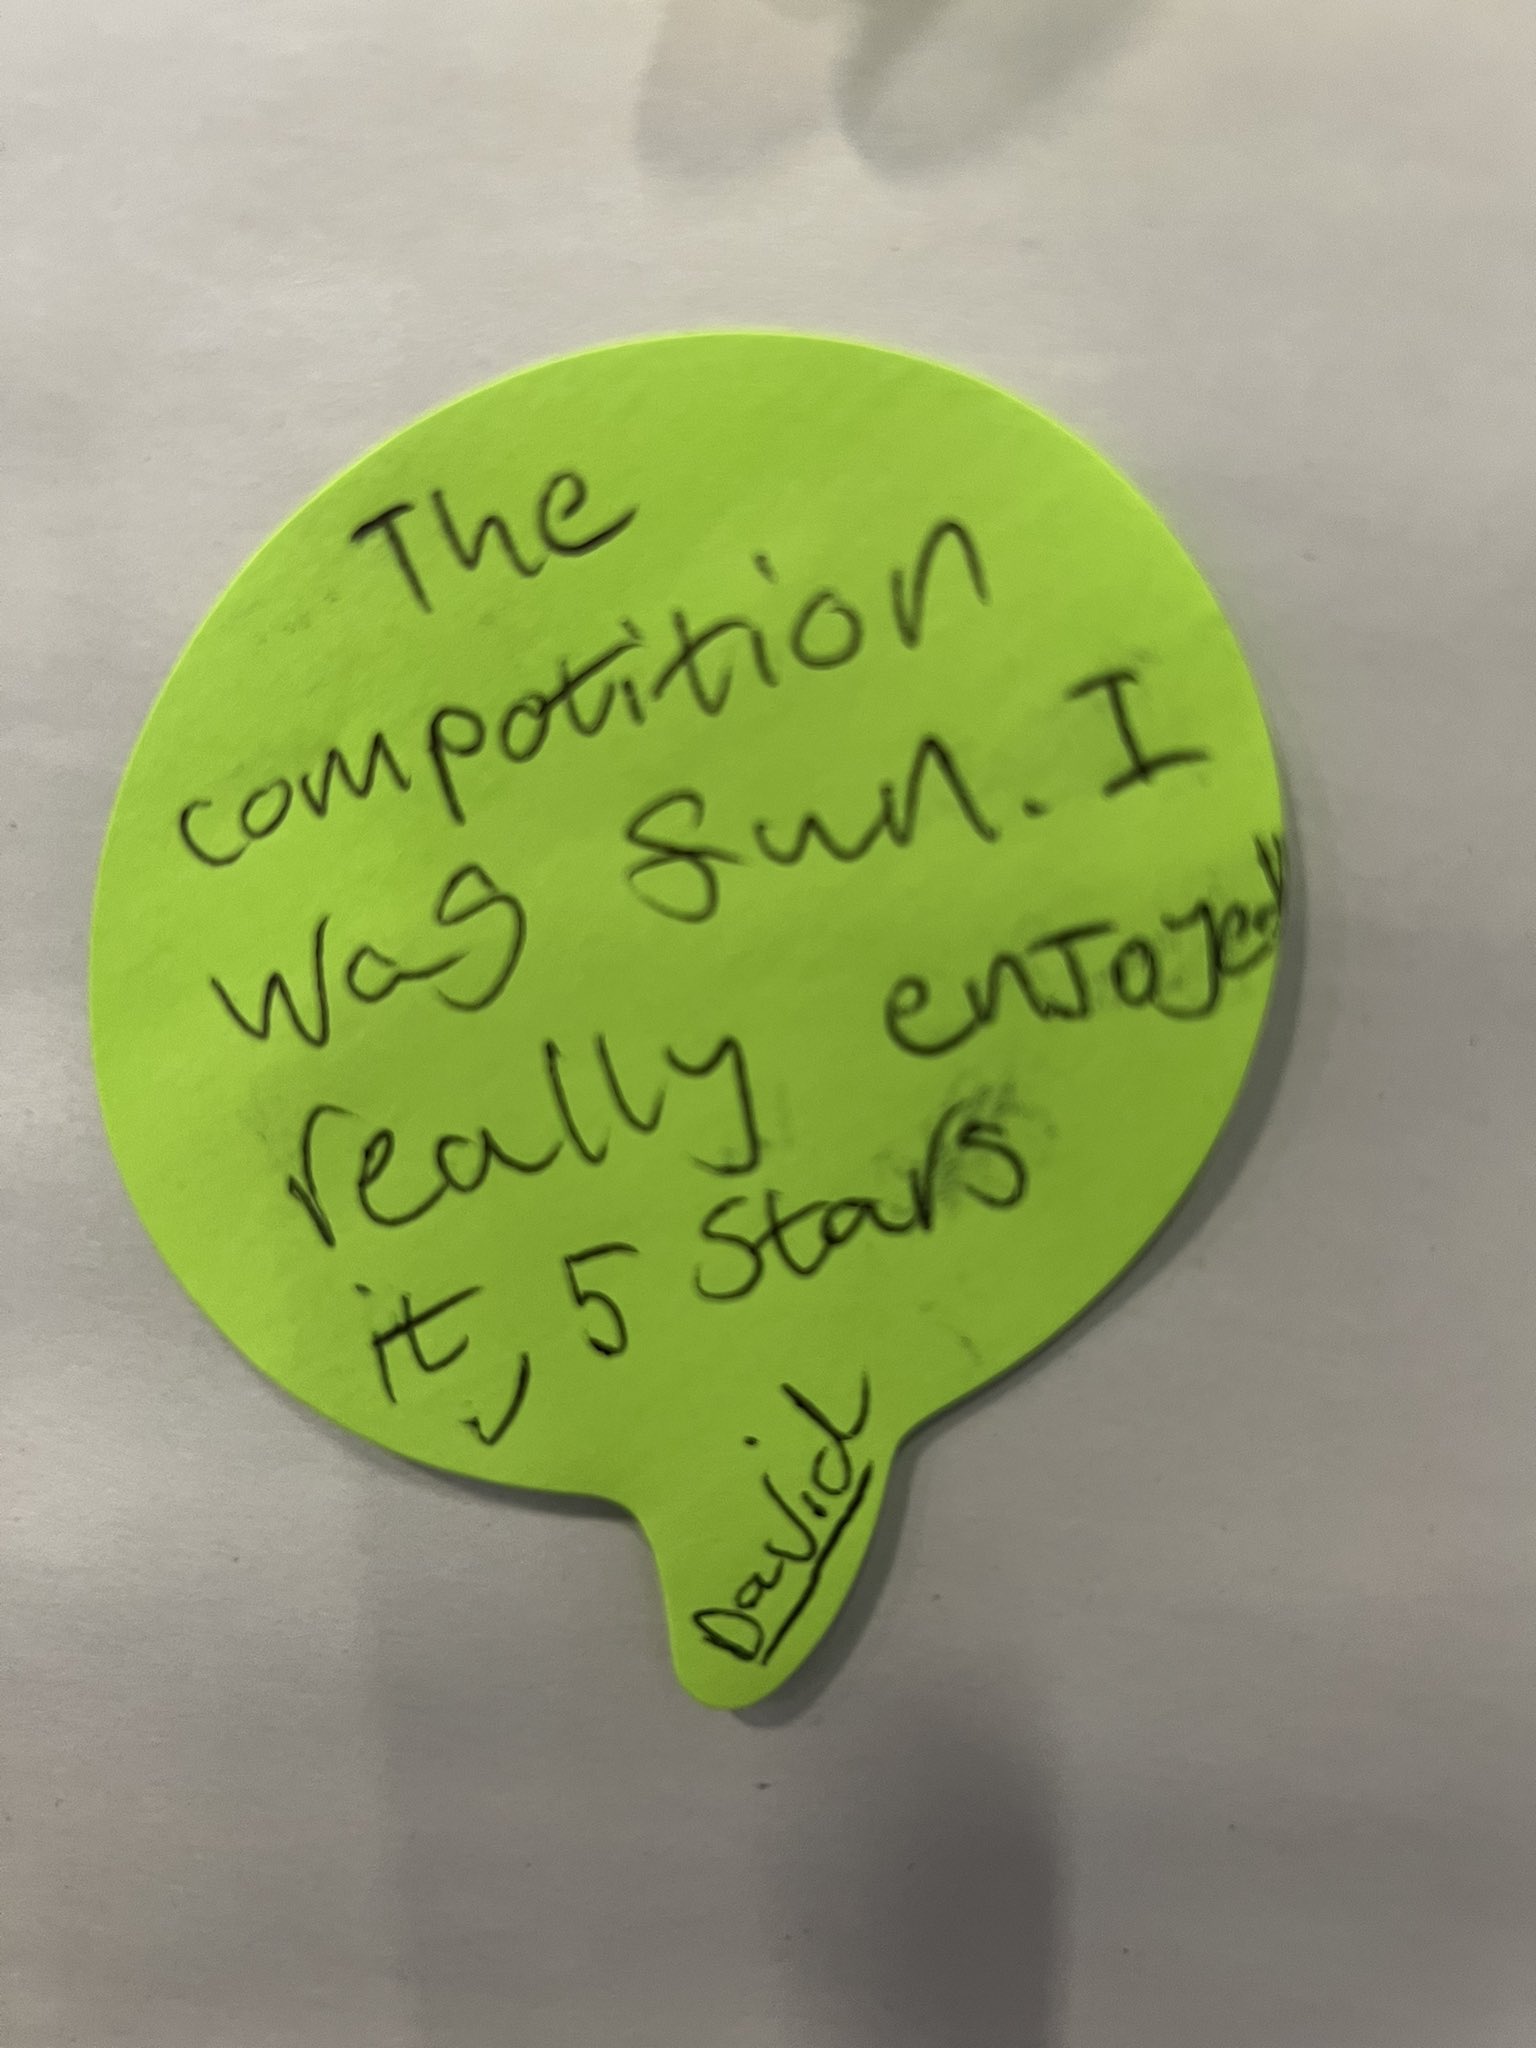 The
compotition
was fun. I
really enjoyed
it, 5 stars
David